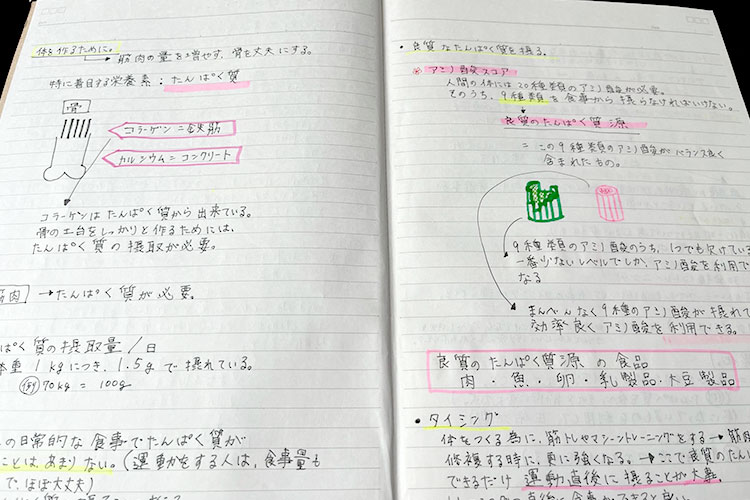 体を作るために。
→ 筋肉の量を増やす、骨を丈夫にする。
特に着目する栄養素：たんぱく質
骨
コラーゲン＝鉄筋
カルシウム＝コンクリート
コラーゲンはたんぱく質から出来ている。
骨の土台をしっかりと作るためには、
たんぱく質の摂取が必要。
筋肉 → たんぱく質が必要。
ぱく質の摂取量/日
体重1kgにつき、1.5gで摂れている。
例 70kg = 100g
の日常的な食事でたんぱく質が
ことはあまりない。(運動をする人は、食事量も
でほぼ大丈夫)
・良質なたんぱく質を摂る。
アミノ酸スコア
人間の体には20種類のアミノ酸が必要。
そのうち、9種類を食事から摂らなければいけない。
良質のたんぱく質源
＝この9種類のアミノ酸がバランス良く
含まれたもの。
9種類のアミノ酸のうち、1つでも欠けている
一番少ないレベルでしか、アミノ酸を利用で
なる
まんべんなく9種のアミノ酸が摂れて
効率良くアミノ酸を利用できる。
良質のたんぱく質源の食品
肉・魚・卵・乳製品・大豆製品
・タイミング
体をつくる為に、筋トレやマシーントレーニングをする→筋肉
修復する時に、更に強くなる。→ここで良質のたん
できるだけ運動直後に摂ることが大事。